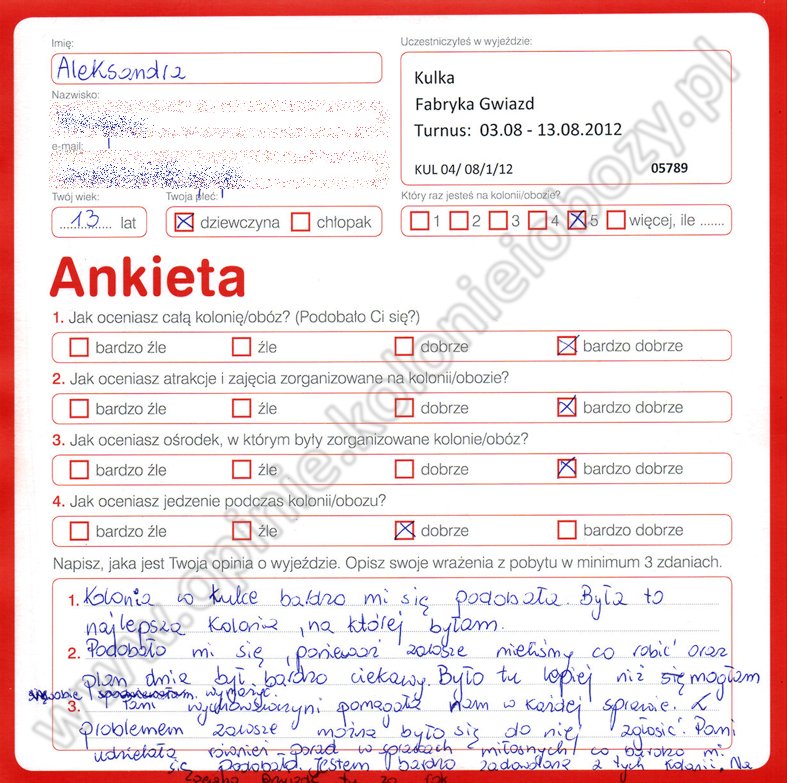 Imię:
Aleksandra
Nazwisko:
e-mail:
Twój wiek:
13 lat
Twoja płeć:
dziewczyna chłopak
Uczestniczyłeś w wyjeździe:
Kulka
Fabryka Gwiazd
Turnus: 03.08 - 13.08.2012
KUL 04/ 08/1/12 05789
Który raz jesteś na kolonii/obozie?
1 2 3 4 5 więcej, ile .......
Ankieta
1. Jak oceniasz całą kolonię/obóz? (Podobało Ci się?)
bardzo źle źle dobrze bardzo dobrze
2. Jak oceniasz atrakcje i zajęcia zorganizowane na kolonii/obozie?
bardzo źle źle dobrze bardzo dobrze
3. Jak oceniasz ośrodek, w którym były zorganizowane kolonie/obóz?
bardzo źle źle dobrze bardzo dobrze
4. Jak oceniasz jedzenie podczas kolonii/obozu?
bardzo źle źle dobrze bardzo dobrze
Napisz, jaka jest Twoja opinia o wyjeździe. Opisz swoje wrażenia z pobytu w minimum 3 zdaniach.
1. Kolonia w Kulce bardzo mi się podobała. Była to
najlepsza kolonia, na której byłam.
2. Podobało mi się, ponieważ zawsze mieliśmy co robić oraz
plan dnia był bardzo ciekawy. Było tu lepiej niż się mogłam
sobie wymarzyć.
3. Pani wychowawczyni pomagała nam w każdej sprawie. Z
problemem zawsze można było się do niej zgłosić. Pani
udzielała również porad w sprawach miłosnych, co bardzo mi
się podobało. Jestem bardzo zadowolona z tych kolonii. Na
tu za rok
www.opinie.kolonieiobozy.pl